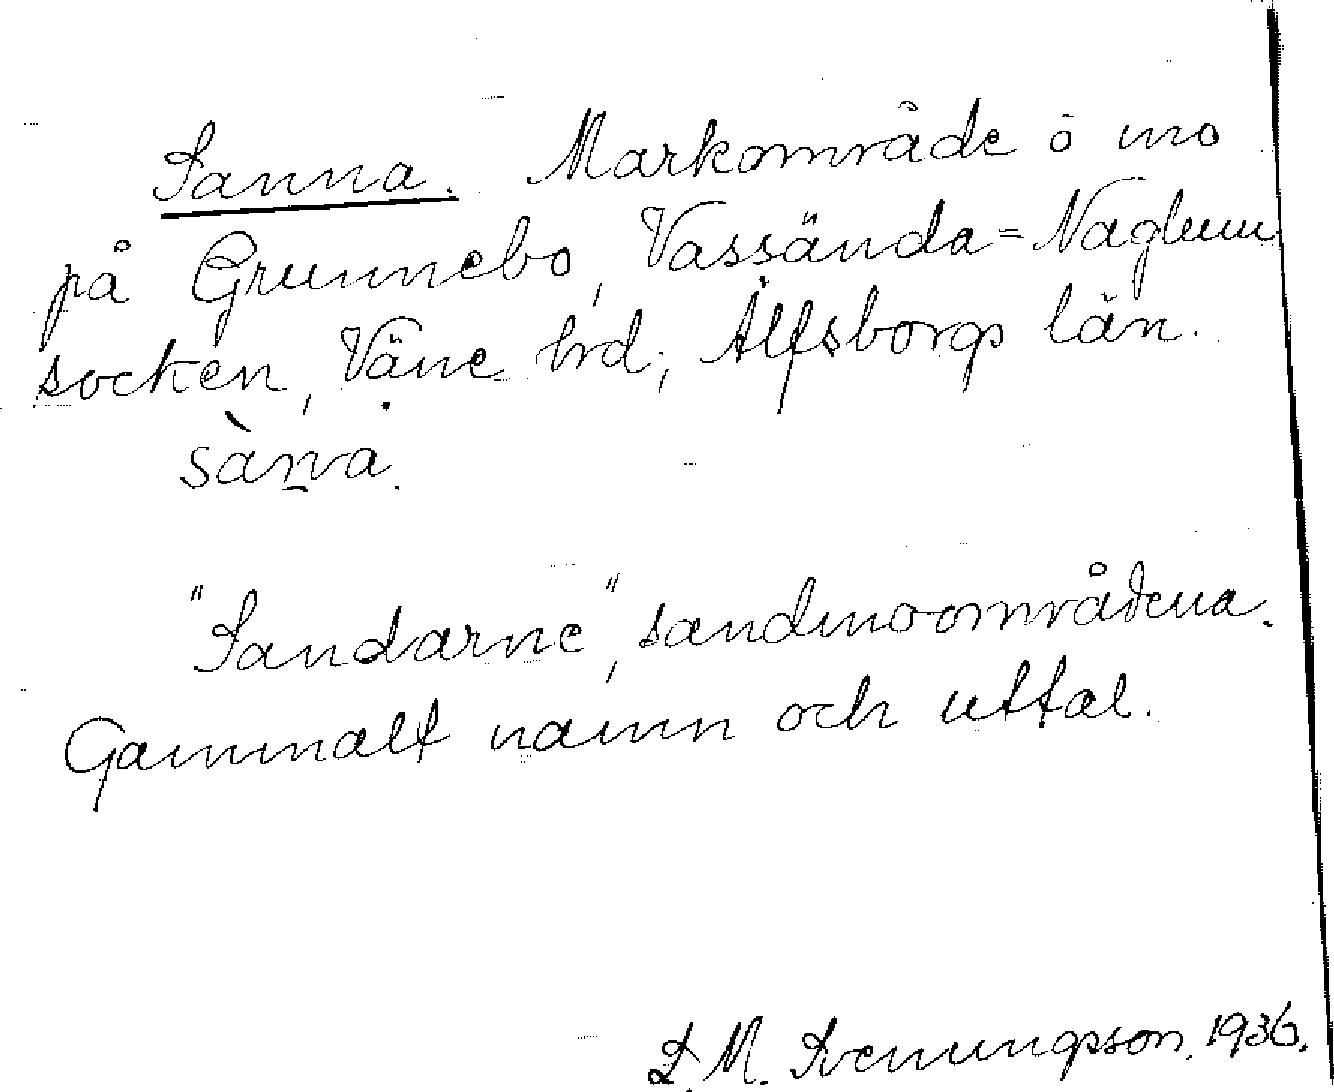 Sanna. Markområde ö mo
på Grunnebo, Vassända-Naglum
socken, Väne hrd, Älfsborgs län.
sànna.
"Sandarne", sandmoområdena.
Gammalt namn och uttal.
L. M. Svenungsson. 1936.